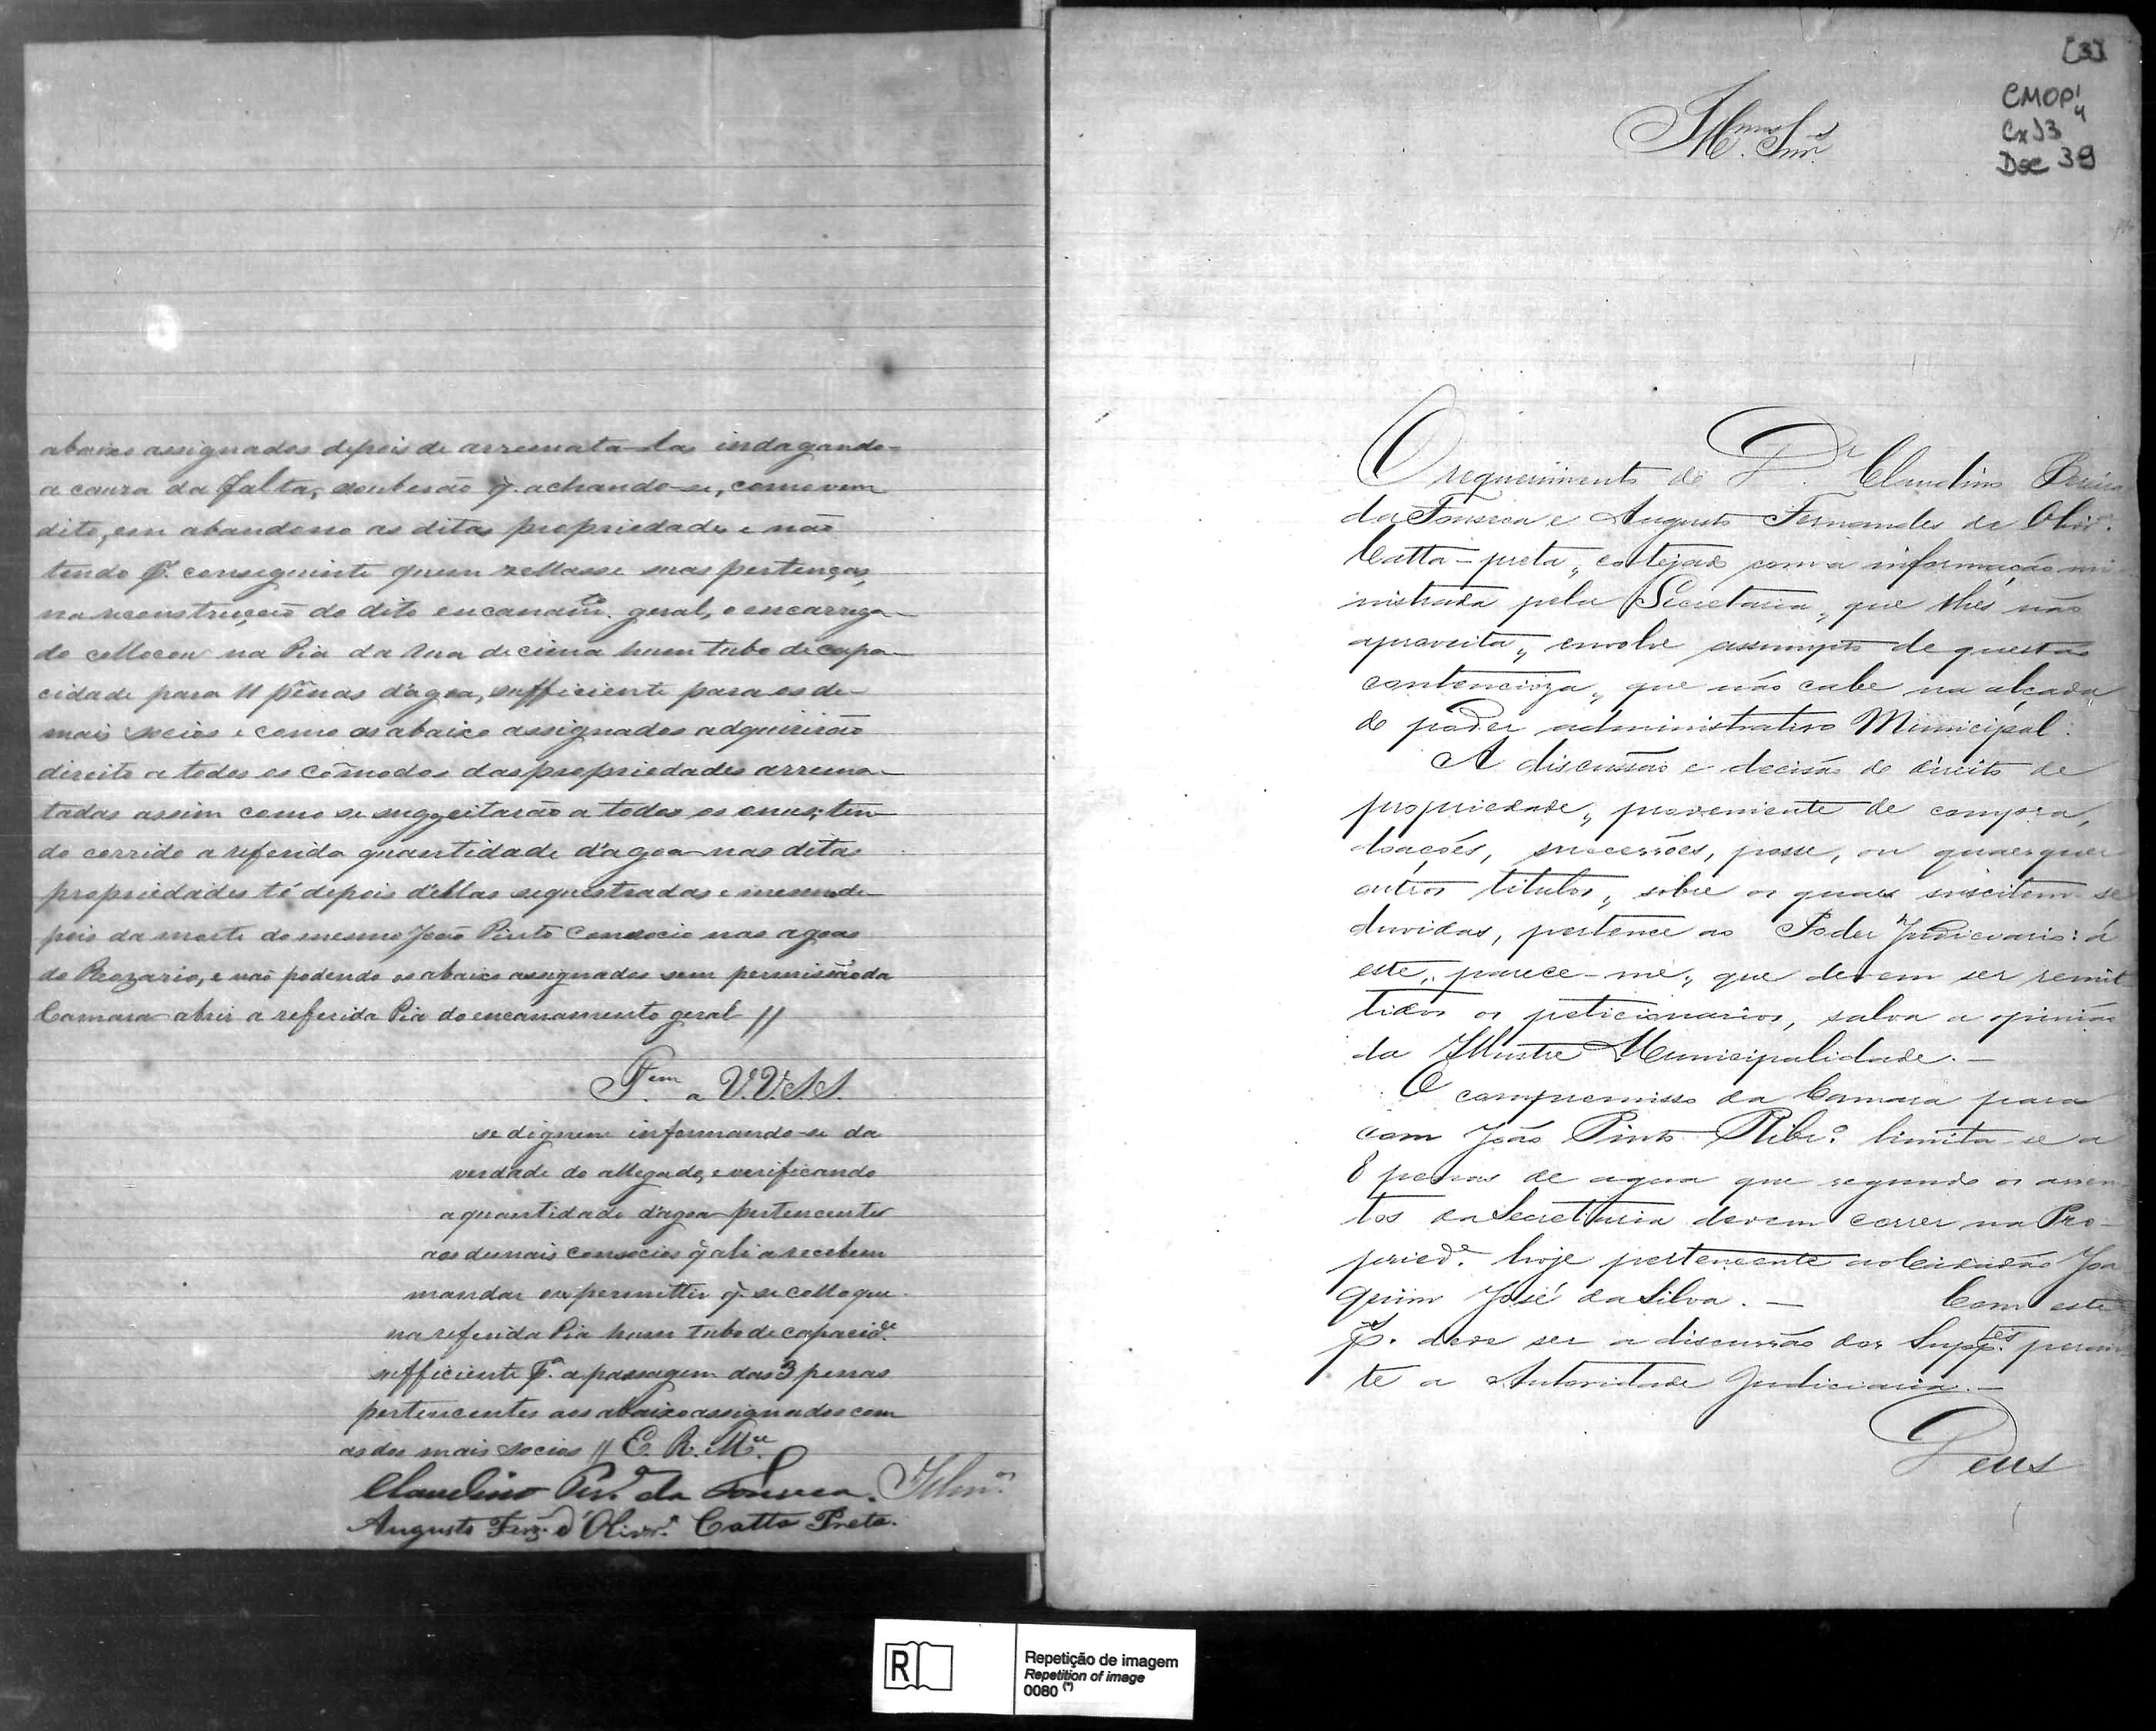 abaixo assignados depois de arremata-las indagando-
a couza da falta, souberão q̃. achando-se, como vem
dito, em abandono as ditas propriedades e não
tendo pr. conseguinte quem zellasse suas pertenças,
na reconstrucção do dito encanamto. geral, o encarrega-
do collocou na Pia da rua de cima hum tubo de capa-
cidade para 11 penas d'agoa, sufficiente para os de-
mais socios e como os abaixo assignados adquirirão
direito a todos os cõmodos das propriedades arrema-
tadas assim como se suggeitarão a todos os onus; ten-
do corrido a referida quantidade d'agoa nas ditas
propriedades té depois d'ellas sequestradas e mesmo de-
pois da morte do mesmo João Pinto Consocio nas agoas
do Rozario, e não podendo os abaixo assignados sem permissão da
Camara abrir a referida Pia do encanamento geral //
P.em a V.V.S.S.
se dignem informando-se da
verdade do allegado, e verificando
a quantidade d'agoa pertencente
aos demais consocios q̃ ali a recebem
mandar ou permittir q̃. se colloque
na referida Pia hum tubo de capacide.
sufficiente pa. a passagem das 3 penas
pertencentes aos abaixo assignados com
as dos mais socios // E. R. Mce.
Claudino Per.a da Fonseca.
Augusto Ferz. d'Olivr.a Catta Preta.
Illm.os
[3]
CMOP
Cx 13
Doc 39
Illmos. Snrs.
O requerimento de Dr. Claudino Pereira
da Fonseca e Augusto Fernandes de Olivr.a
Catta-preta, cotejado com a informação mi-
nistrada pela Secretaria, que lhes não
aproveita, envolve assumpto de questão
contencioza, que não cabe na alçada
do poder administrativo Municipal.
A discussão e decisão de direito de
propriedade, proveniente de compra,
doações, successões, posse, ou quaesquer
outros titulos, sobre os quaes suscitem-se
duvidas, pertence ao Poder Judiciario: á
este, parece-me, que devem ser remet-
tidos os peticionarios, salva a opinião
da Illustre Municipalidade. —
O compromisso da Camara para
com João Pinto Ribr.o limita-se a
8 penas de agua que segundo os assen-
tos da Secretaria devem correr na Pro-
pried.e hoje pertencente ao Cidadão Joa
quim José da Silva. — Com este
ps. deve ser a discussão dos Supp.tes peran-
te a Autoridade Judiciaria. —
Deus
R
Repetição de imagem
Repetition of image
0080 (*)